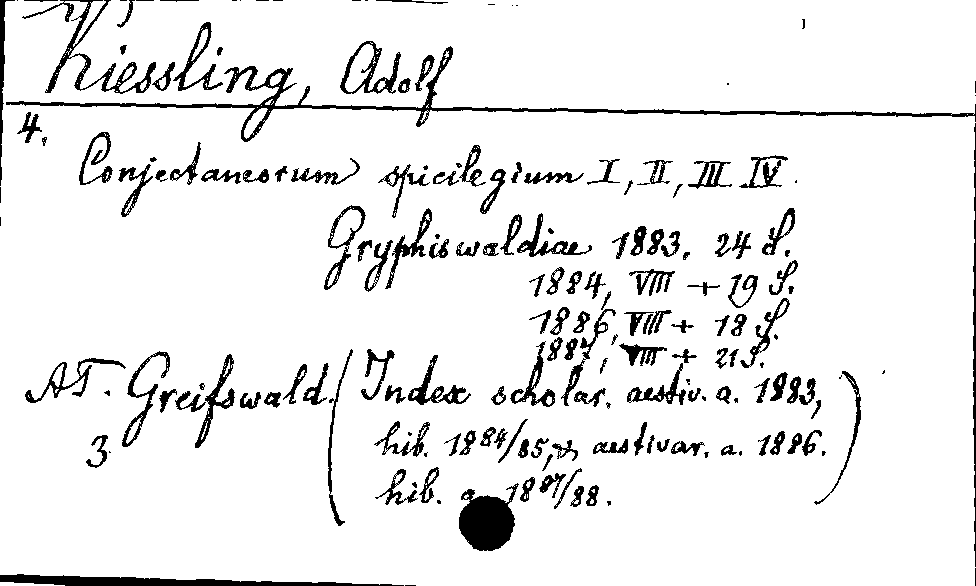 Kiessling, Adolf
4.
Conjectaneorum spicilegium I, II, III IV.
Gryphiswaldiae 1883. 24 S.
1884, VIII + 19 S.
1886, VIII + 18 S.
1887, VIII + 21 S.
AT. Greifswald. (Index scholar. aestiv. a. 1883,
3 hib. 1884/85, & aestivar. a. 1886.
hib. a. 1887/88.)